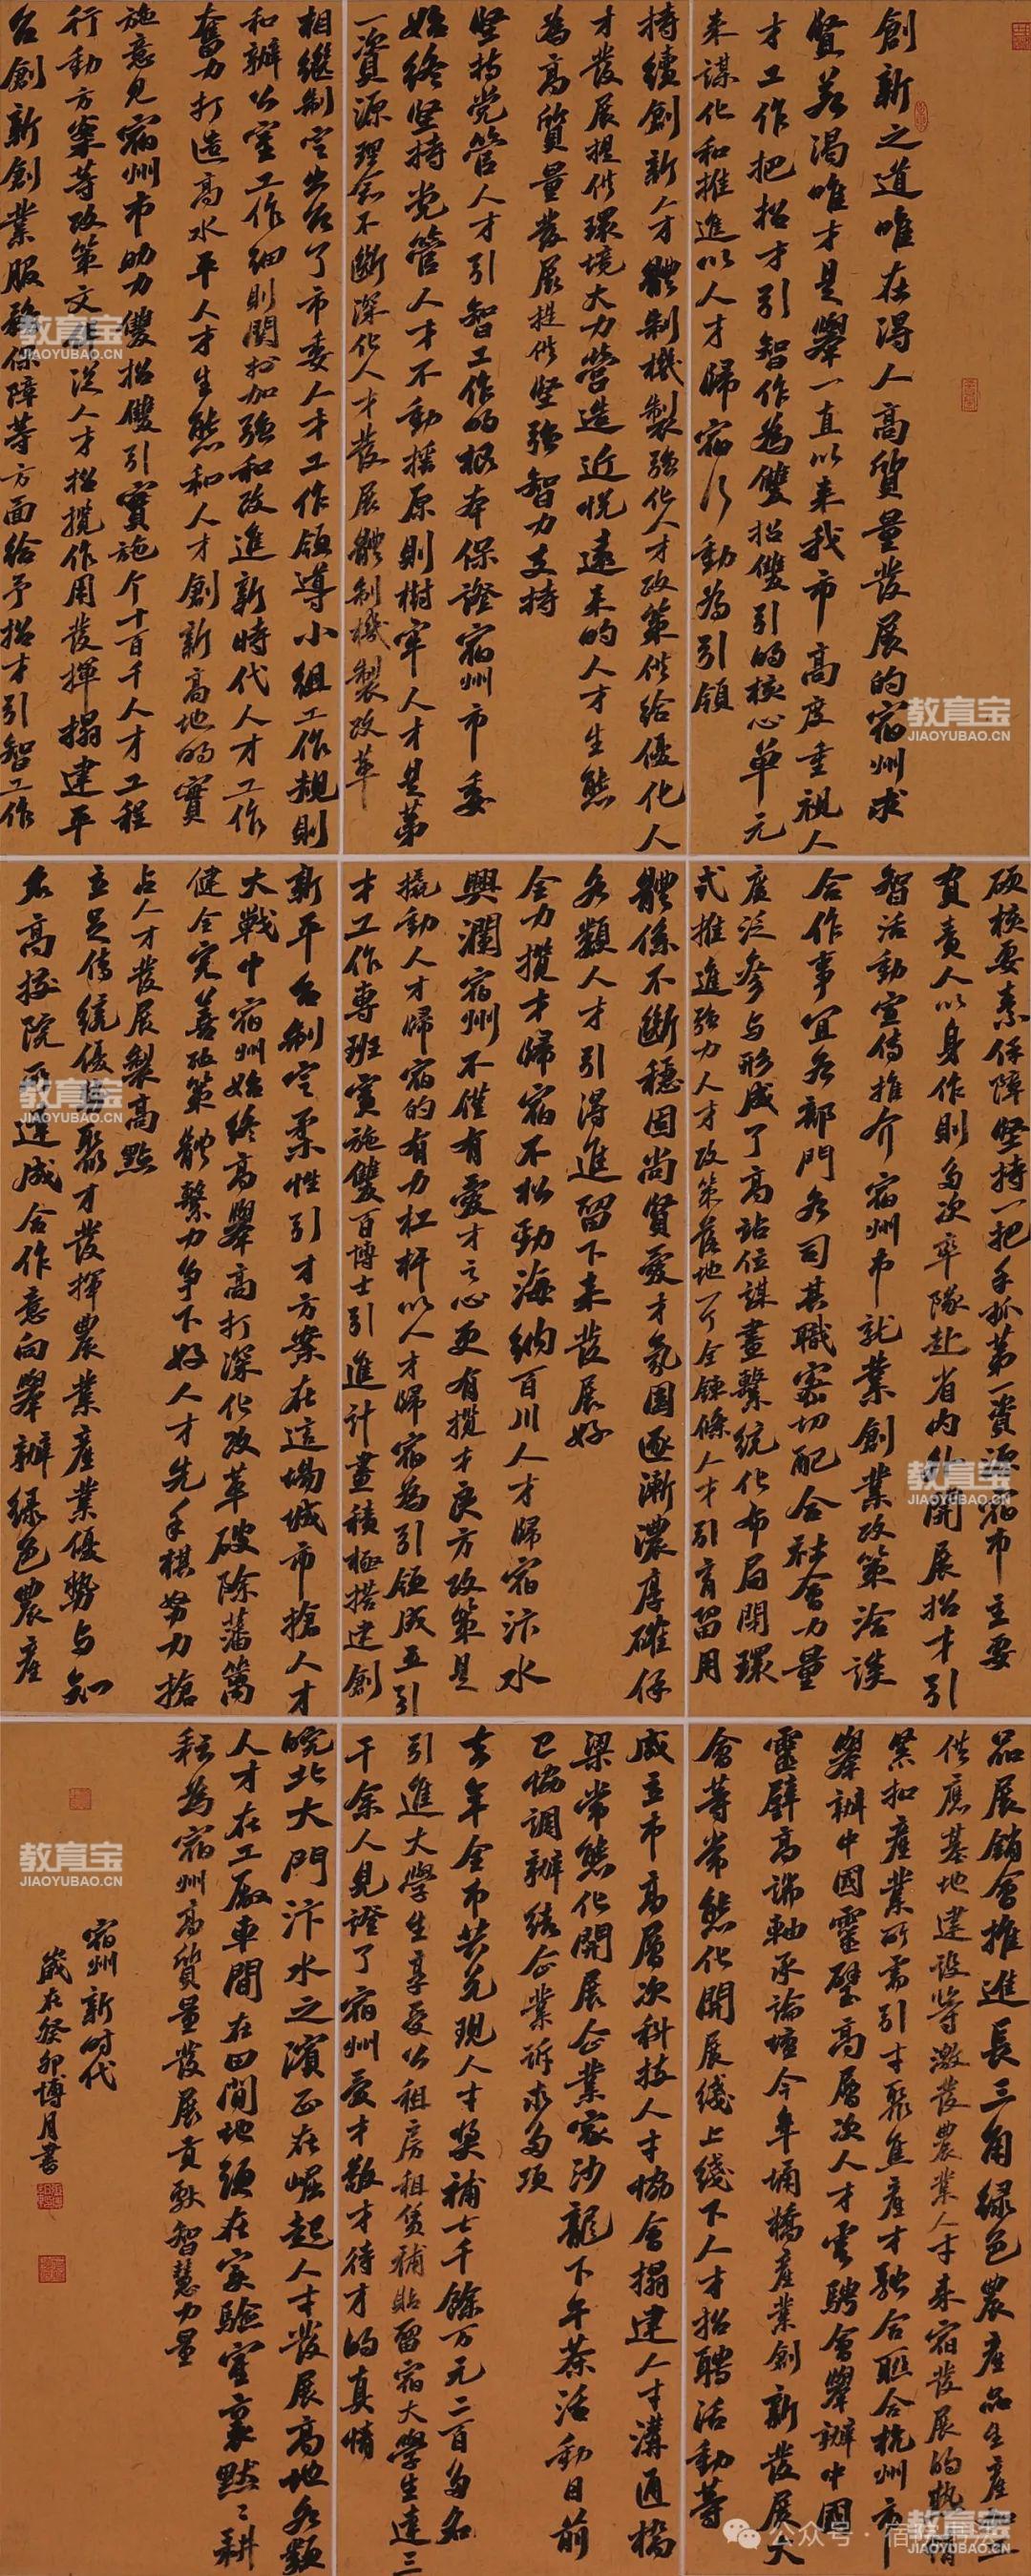 創新之道唯在得人高質量發展的宿州求
賢若渴唯才是舉一直以来我市高度重視人
才工作把招才引智作為雙招雙引的核心單元
来謀化和推進以人才歸宿行動為引領
持續創新人才體制機製強化人才政策供給優化人
才發展提供環境大力營造近悦遠来的人才生態
為高質量發展提供堅強智力支持
堅持党管人才引智工作的根本保證宿州市委
始終堅持党管人才不動摇原則樹牢人才是第
一資源理念不斷深化人才發展體制機製改革
相继制定出台了市委人才工作領導小組工作規則
和辦公室工作细則關於加強和改進新時代人才工作
奮力打造高水平人才生態和人才創新高地的實
施意见宿州市助力雙招雙引實施个十百千人才工程
行動方案等政策文件從人才招攬作用發揮搨建平
台創新創業服務保障等方面給予招才引智工作
硕核要素保障堅持一把手抓第一資源宿市主要
負責人以身作則多次率隊赴省内外開展招才引
智活動宣传推介宿州市就業創業政策洽談
合作事宜各部門各司其職密切配合社會力量
廣泛參与形成了高站位謀畫繫統化布局閉環
式推進強力人才政策落地可全鍊條人才引育留用
體係不斷穩固尚賢爱才氛圍逐漸濃厚確保
各類人才引得進留下来發展好
全力攬才歸宿不松勁海納百川人才歸宿汴水
興瀾宿州不僅有愛才之心更有攬才良方政策是
撬動人才歸宿的有力杠杆以人才歸宿為引領成立引
才工作專班實施雙百博士引進計畫積極搭建創
新平台制定柔性引才方案在這場城市搶人才
大戰中宿州始終高舉高打深化改革破除藩籬
健全完善政策體繫力争下好人才先手棋努力搶
占人才發展製高點
立足传统優勢聚才發揮農業產業優勢与知
名高校院所達成合作意向舉辦绿色農產
品展銷會推進長三角绿色農產品生產加工
供應基地建設等激發農業人才来宿發展的熱情
紧扣產業所需引才聚焦產才融合聯合杭州市
舉辦中國靈璧高層次人才雲聘會舉辦中國
靈璧高端軸承論壇今年埇橋產業創新發展大
會等常態化開展綫上綫下人才招聘活動等
成立市高層次科技人才協會搨建人才溝通橋
梁常態化開展企業家沙龍下午茶活動目前
已協調辦结企業诉求多项
去年全市共兑現人才獎補七千餘万元二百多名
引進大學生享受公租房租赁補貼留宿大學生達三
千余人見證了宿州爱才敬才待才的真情
皖北大門汴水之濱正在崛起人才發展高地各類
人才在工厰車間在田間地頭在实驗室裏默默耕
耘為宿州高質量發展貢献智慧力量
宿州新时代
歲在癸卯博月書
教育宝
JIAOYUBAO.CN
教育宝
JIAOYUBAO.CN
教育宝
JIAOYUBAO.CN
教育宝
JIAOYUBAO.CN
教育宝
JIAOYUBAO.CN
教育宝
JIAOYUBAO.CN